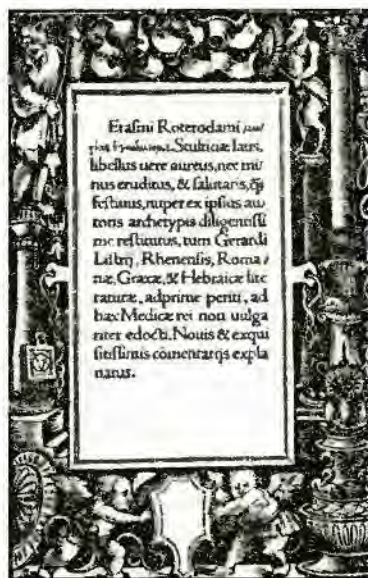 Erasmi Roterodami
Stulticiæ laus,
libellus uere aureus, nec mi/
nus eruditus, & salutaris, q̃
festiuus, nuper ex ipsius au/
toris archetypis diligentissi
me restitutus, tum Gerardi
Listrij, Rhenensis, Roma/
næ, Græcæ, & Hebraicæ lite
raturæ, adprime periti, ad
hæc Medicæ rei non uulga
riter edocti. Nouis & exqui
sitissimis cõmentarijs expla
natus.